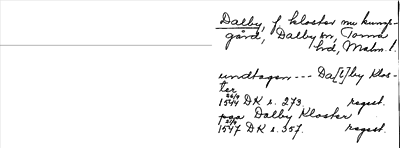 Dalby, f kloster nu kungs-
gård, Dalby sn, Torna
hd, Malm. l.
undtagen --- Da[l]by Klos-
ter
26/9
1544 DK s. 273. regest.
paa Dalby Kloster
21/9
1547 DK s. 357. regest.